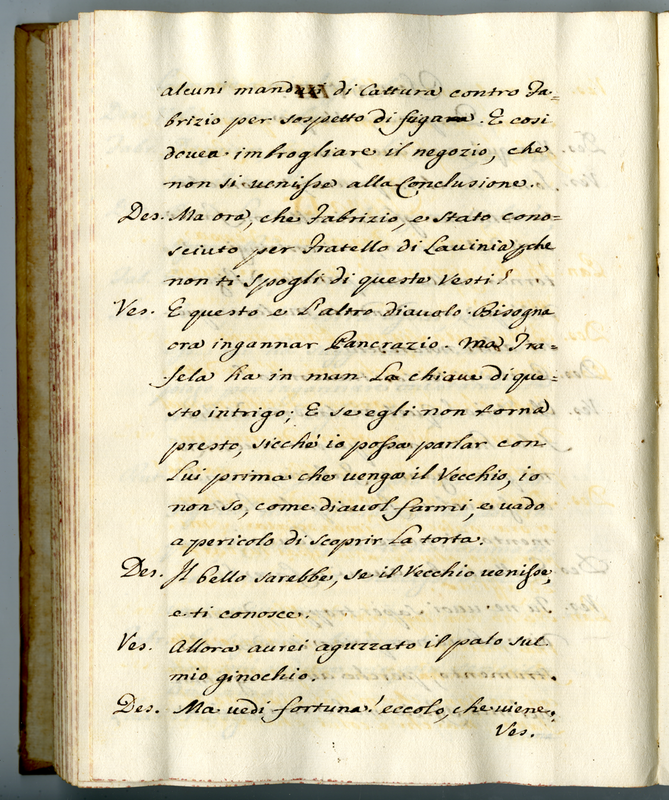 alcuni mandati di Cattura contro Fa=
brizio per sospetto di fuga. E così
dovea imbrogliare il negozio, che
non si venisse alla Conclusione.
Des. Ma ora, che Fabrizio, e stato cono=
sciuto per Fratello di Lavinia, pche
non ti spogli di queste Vesti?
Ves. E questo e l'altro diavolo. Bisogna
ora ingannar Pancrazio. Ma Tra=
fela ha in man La chiave di que=
sto intrigo; E se egli non torna
presto, sicché io possa parlar con
Lui prima che venga il Vecchio, io
non so, come diavol farmi, e vado
a pericolo di scoprir La torta.
Des. Il bello sarebbe, se il Vecchio venisse,
e ti conosce.
Ves. Allora avrei aguzzato il palo sul
mio ginochio.
Des. Ma vedi fortuna! eccolo, che viene.
Ves.